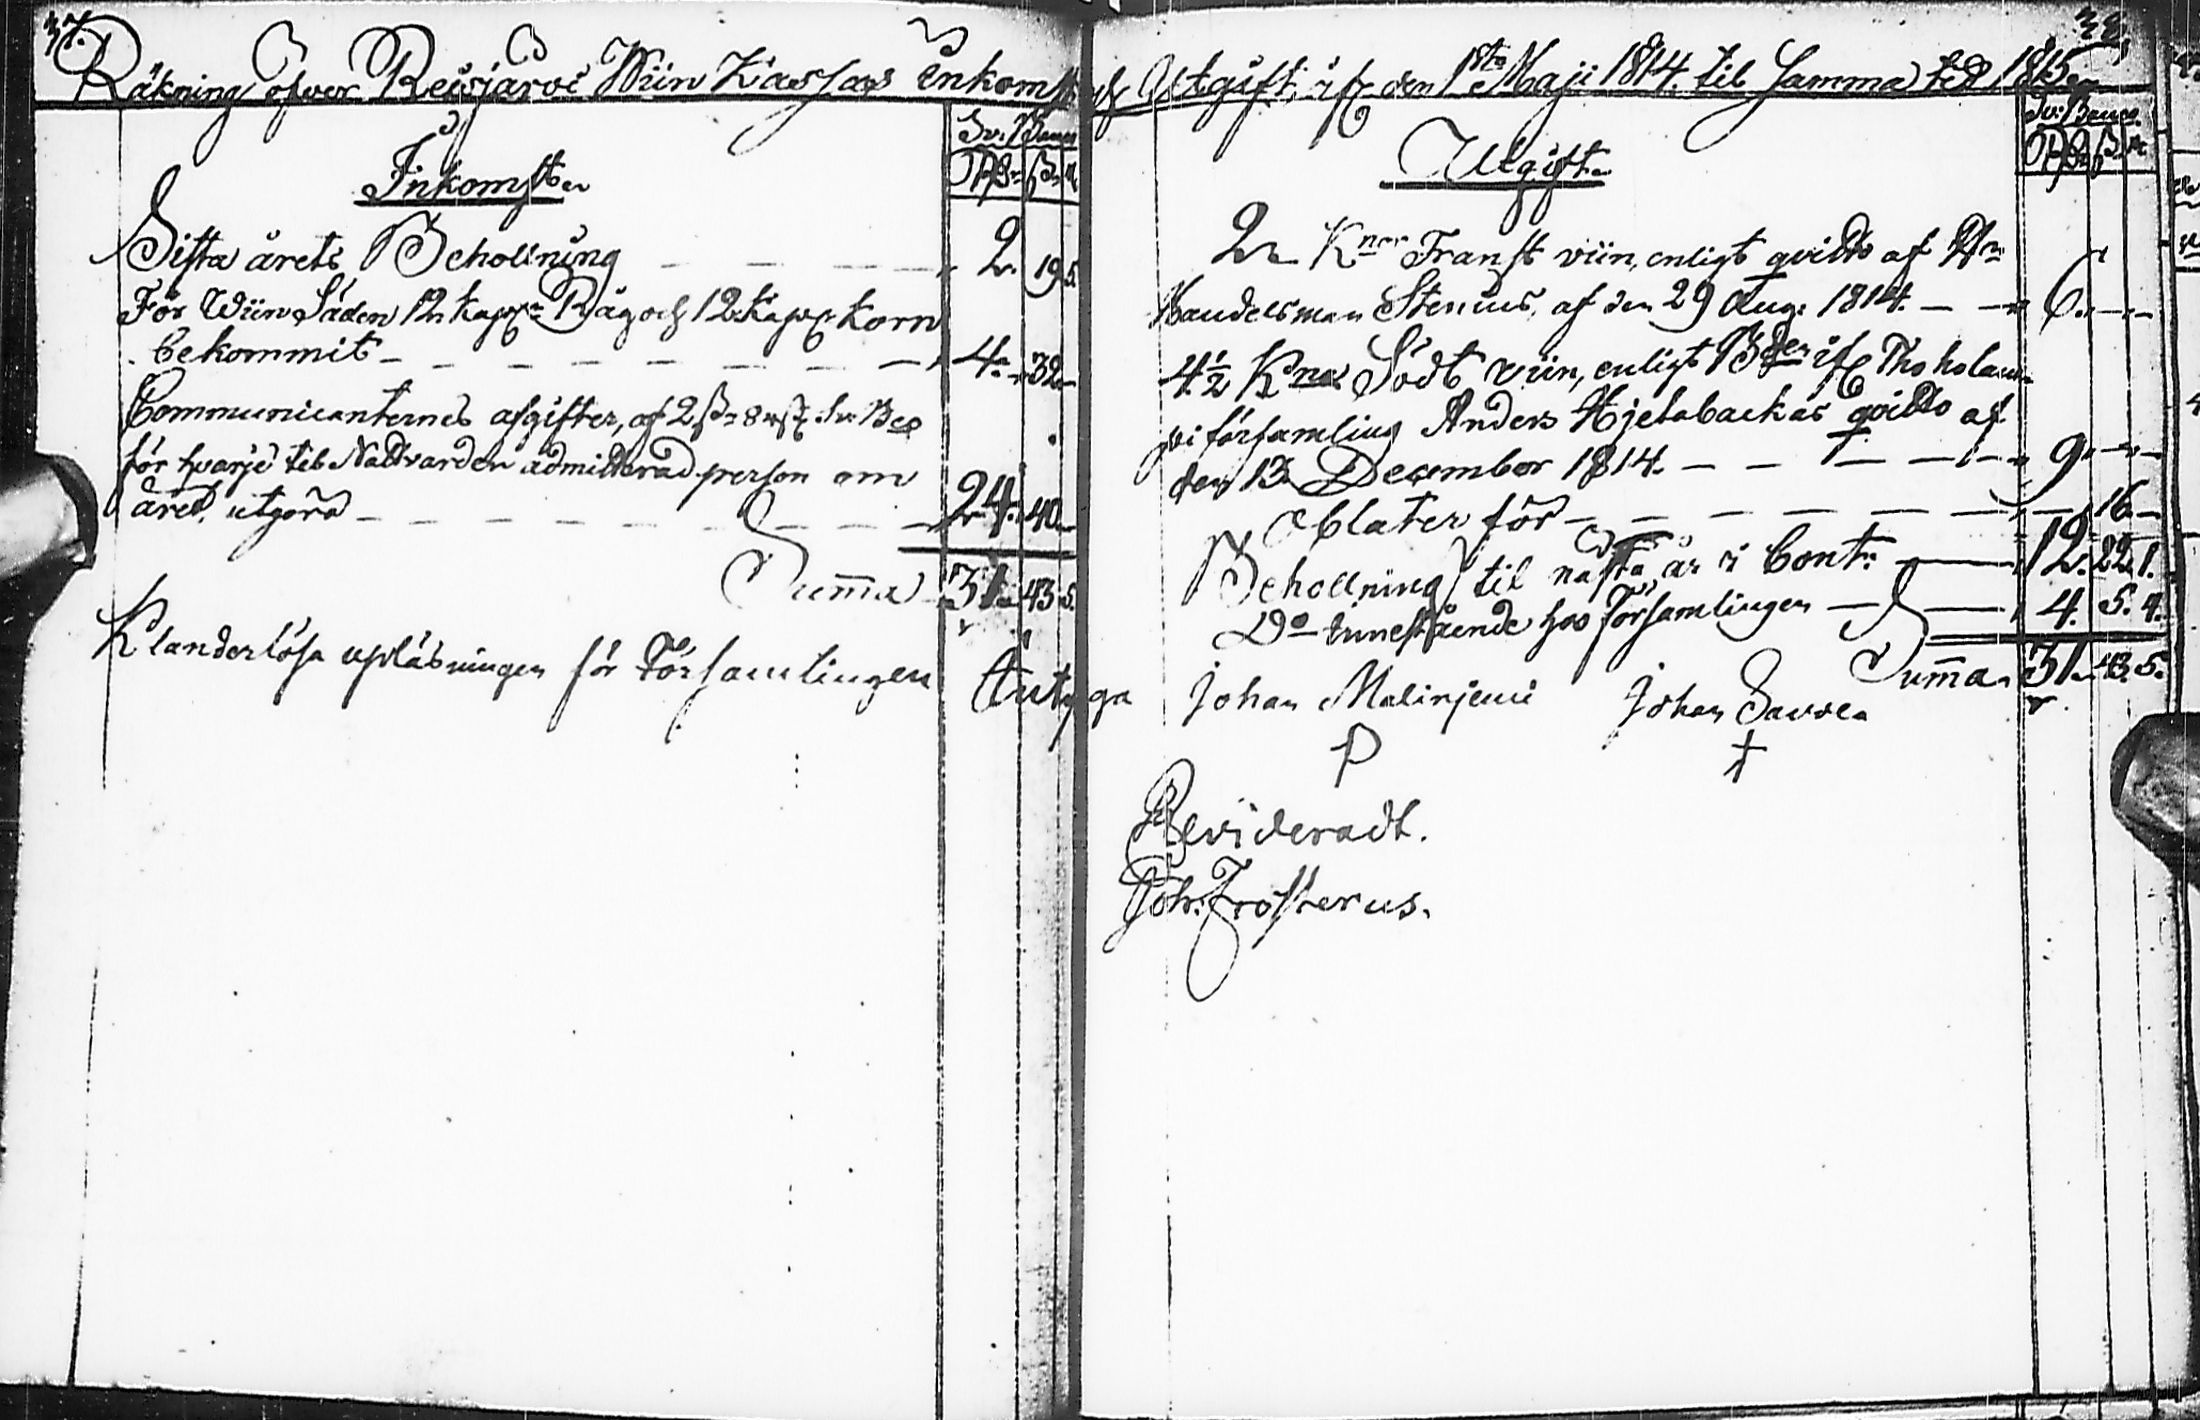 37.
Räkning öfver Reisjärvi Wiin Kassas Inkomst
Sv: Banco
Inkomster
Rd. ß. r.
Sista årets Behollning — — — 2. 19. 5.
För Wiin Säden 12 kappr Råg och 12 kappr Korn
bekommit — — — — — 4. 32. —
Communicanternes afgifter, af 2 ß. 8 rst. Sv: Bco
för hvarje til Nattvarden admitterad person om
året, utgöra — — — — — 24. 40. —
Summa 31. 43. 5.
Klanderlösa upläsningen för Församlingen
38.
och Utgift, ifr. den 1sta Maji 1814. til samma tid 1815.
Sv: Banco.
Utgifter
Rd. ß. r.
2 Knor Franskt viin, enligt qvitto af Hr
Handelsman Stenius, af den 29 Aug: 1814. — — 6. — —
4½ Knor Södt viin, enligt
församling Anders Hjelabackas qvitto af
den 13 December 1814. — — — — 9. — —
Oblater för — — — — — — 16. —
Behollning til nästa år i Cont: — 12. 22. 1.
Do innestående hos Församlingen — 4. 5. 4.
Summa 31. 43. 5.
intyga Johan Malinjemi Johan Savola
Revideradt.
Joh: Frosterus.